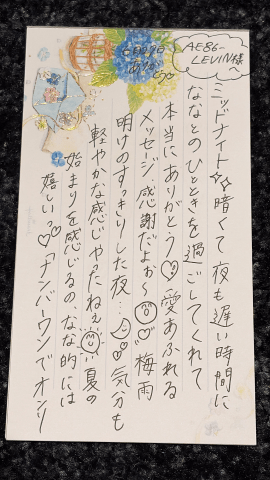 AE86-
LEVIN様
へ
ミッドナイト☆☆暗くて夜も遅い時間に
ななとのひとときを過ごしてくれて
本当にありがとう♡愛あふれる
メッセージ感謝だよぉ〜♡梅雨
明けのすっきりした夜…♡気分も
軽やかな感じやったねぇ 夏の
始まりを感じるの、なな的には
嬉しいっ♡♡「ナンバーワンでオンリー